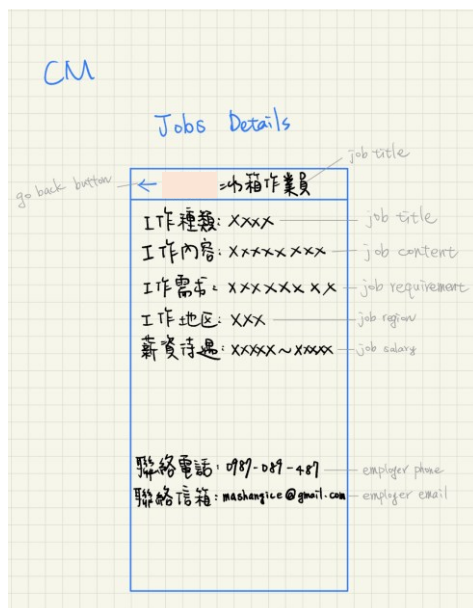 CM
Jobs Details
job title
go back button ← 出箱作業員
工作種類: XXXX job title
工作內容: XXXXXXXX job content
工作需求: XXXXXXXX job requirement
工作地区: XXX job region
薪資待遇: XXXXX~XXXXX job salary
聯絡電話: 0987-087-487 employer phone
聯絡信箱: mashangice@gmail.com employer email